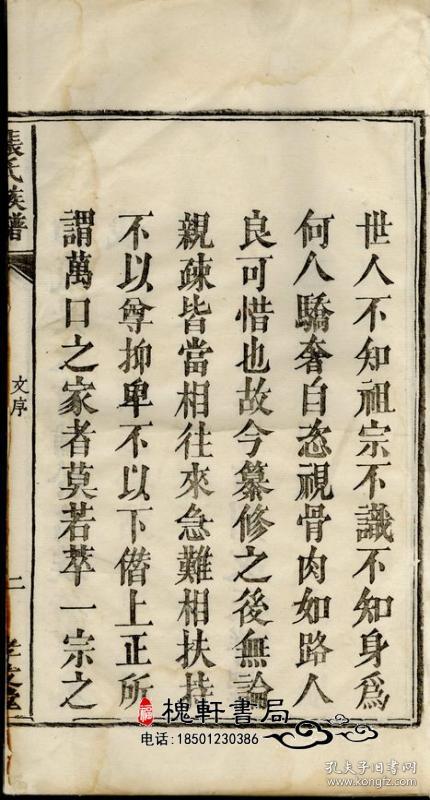 世人不知祖宗不識不知身爲
何人驕奢自恣視骨肉如路人
良可惜也故今纂修之後無論
親疎皆當相往來急難相扶持
不以尊抑卑不以下僭上正所
謂萬口之家者莫若萃一宗之
張氏族譜
文序
二
槐軒書局
电话:18501230386
孔夫子旧书网